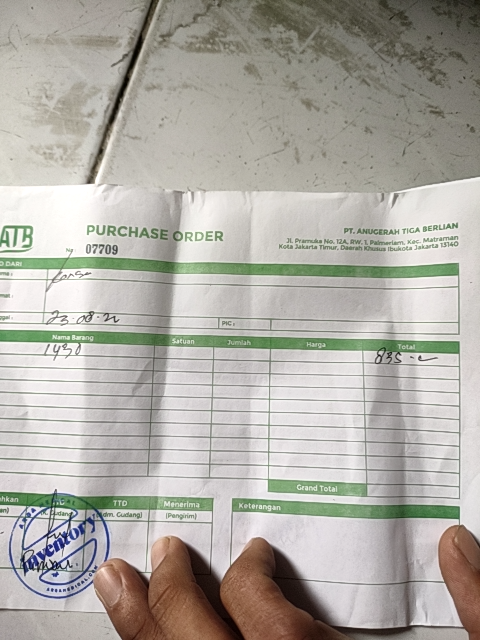 ATB
PURCHASE ORDER
PT. ANUGERAH TIGA BERLIAN
Jl. Pramuka No. 12A, RW. 1, Palmeriam, Kec. Matraman
Kota Jakarta Timur, Daerah Khusus Ibukota Jakarta 13140
No. 07709
DARI
PIC :
Nama Barang Satuan Jumlah Harga Total
1430 835
Grand Total
TTD Menerima Keterangan
Gudang) (Adm. Gudang) (Pengirim)
Inventory